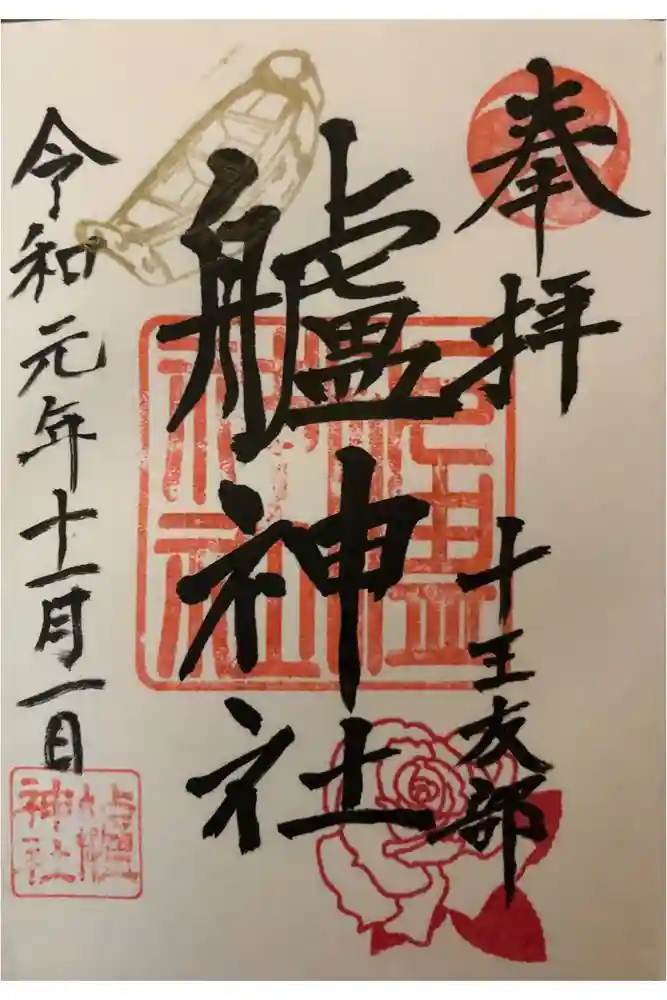 奉拝
十王友部
艫神社
令和元年十一月一日
艫神社
艫神社